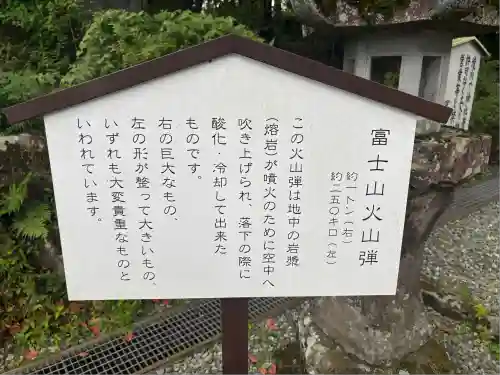 富士山火山弾
約一トン(右)
約二五〇キロ(左)
この火山弾は地中の岩漿
(熔岩)が噴火のために空中へ
吹き上げられ、落下の際に
酸化・冷却して出来た
ものです。
右の巨大なもの、
左の形が整って大きいもの、
いずれも大変貴重なものと
いわれています。